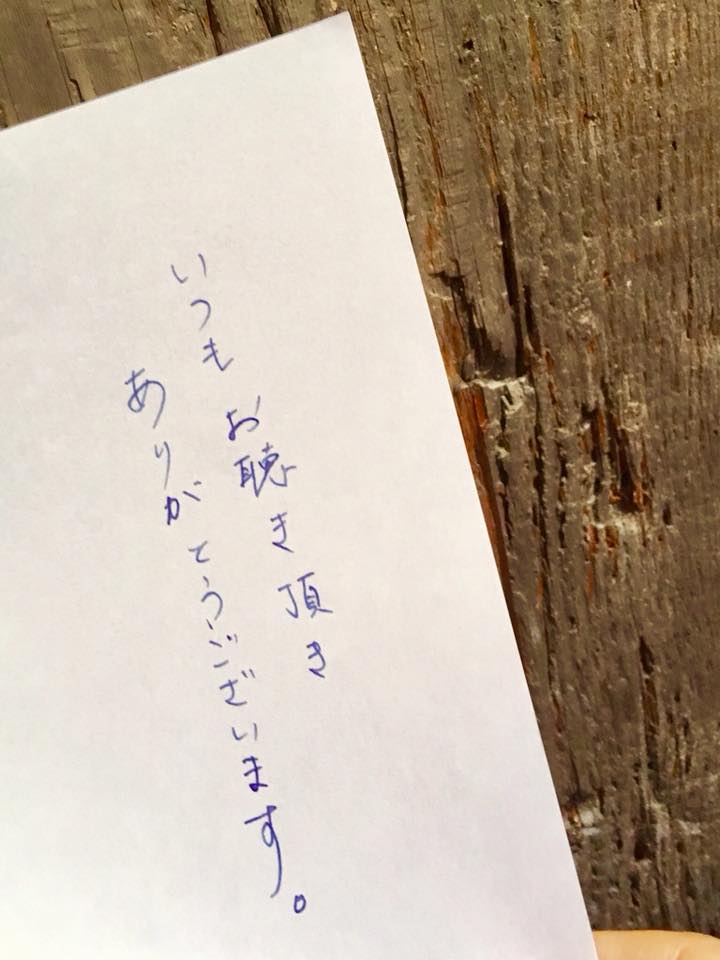 いつもお聴き頂き
ありがとうございます。